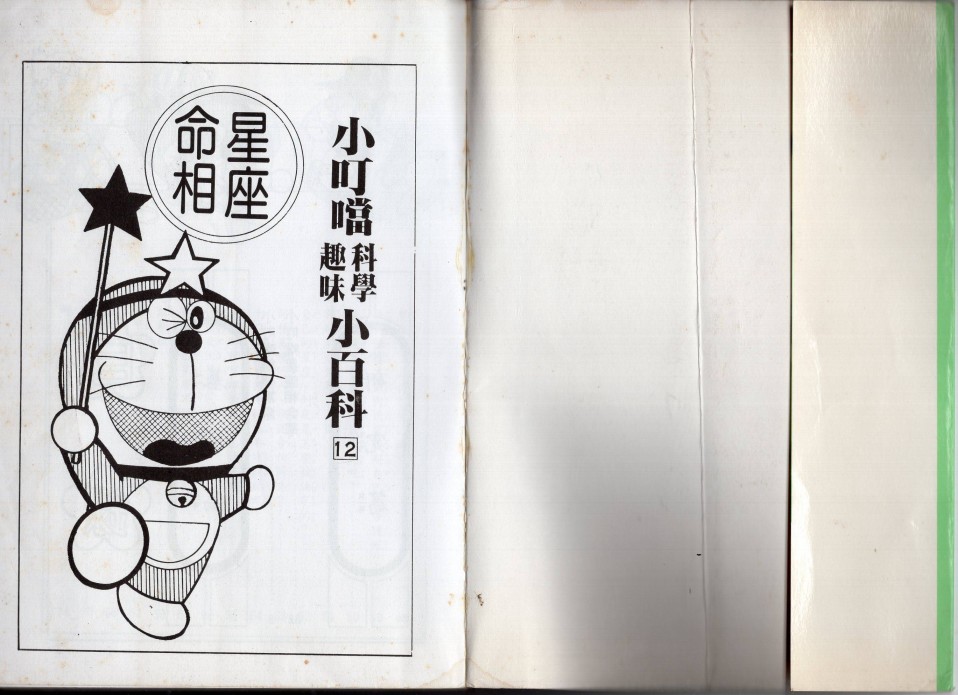 小叮噹科學趣味小百科 12
星座
命相